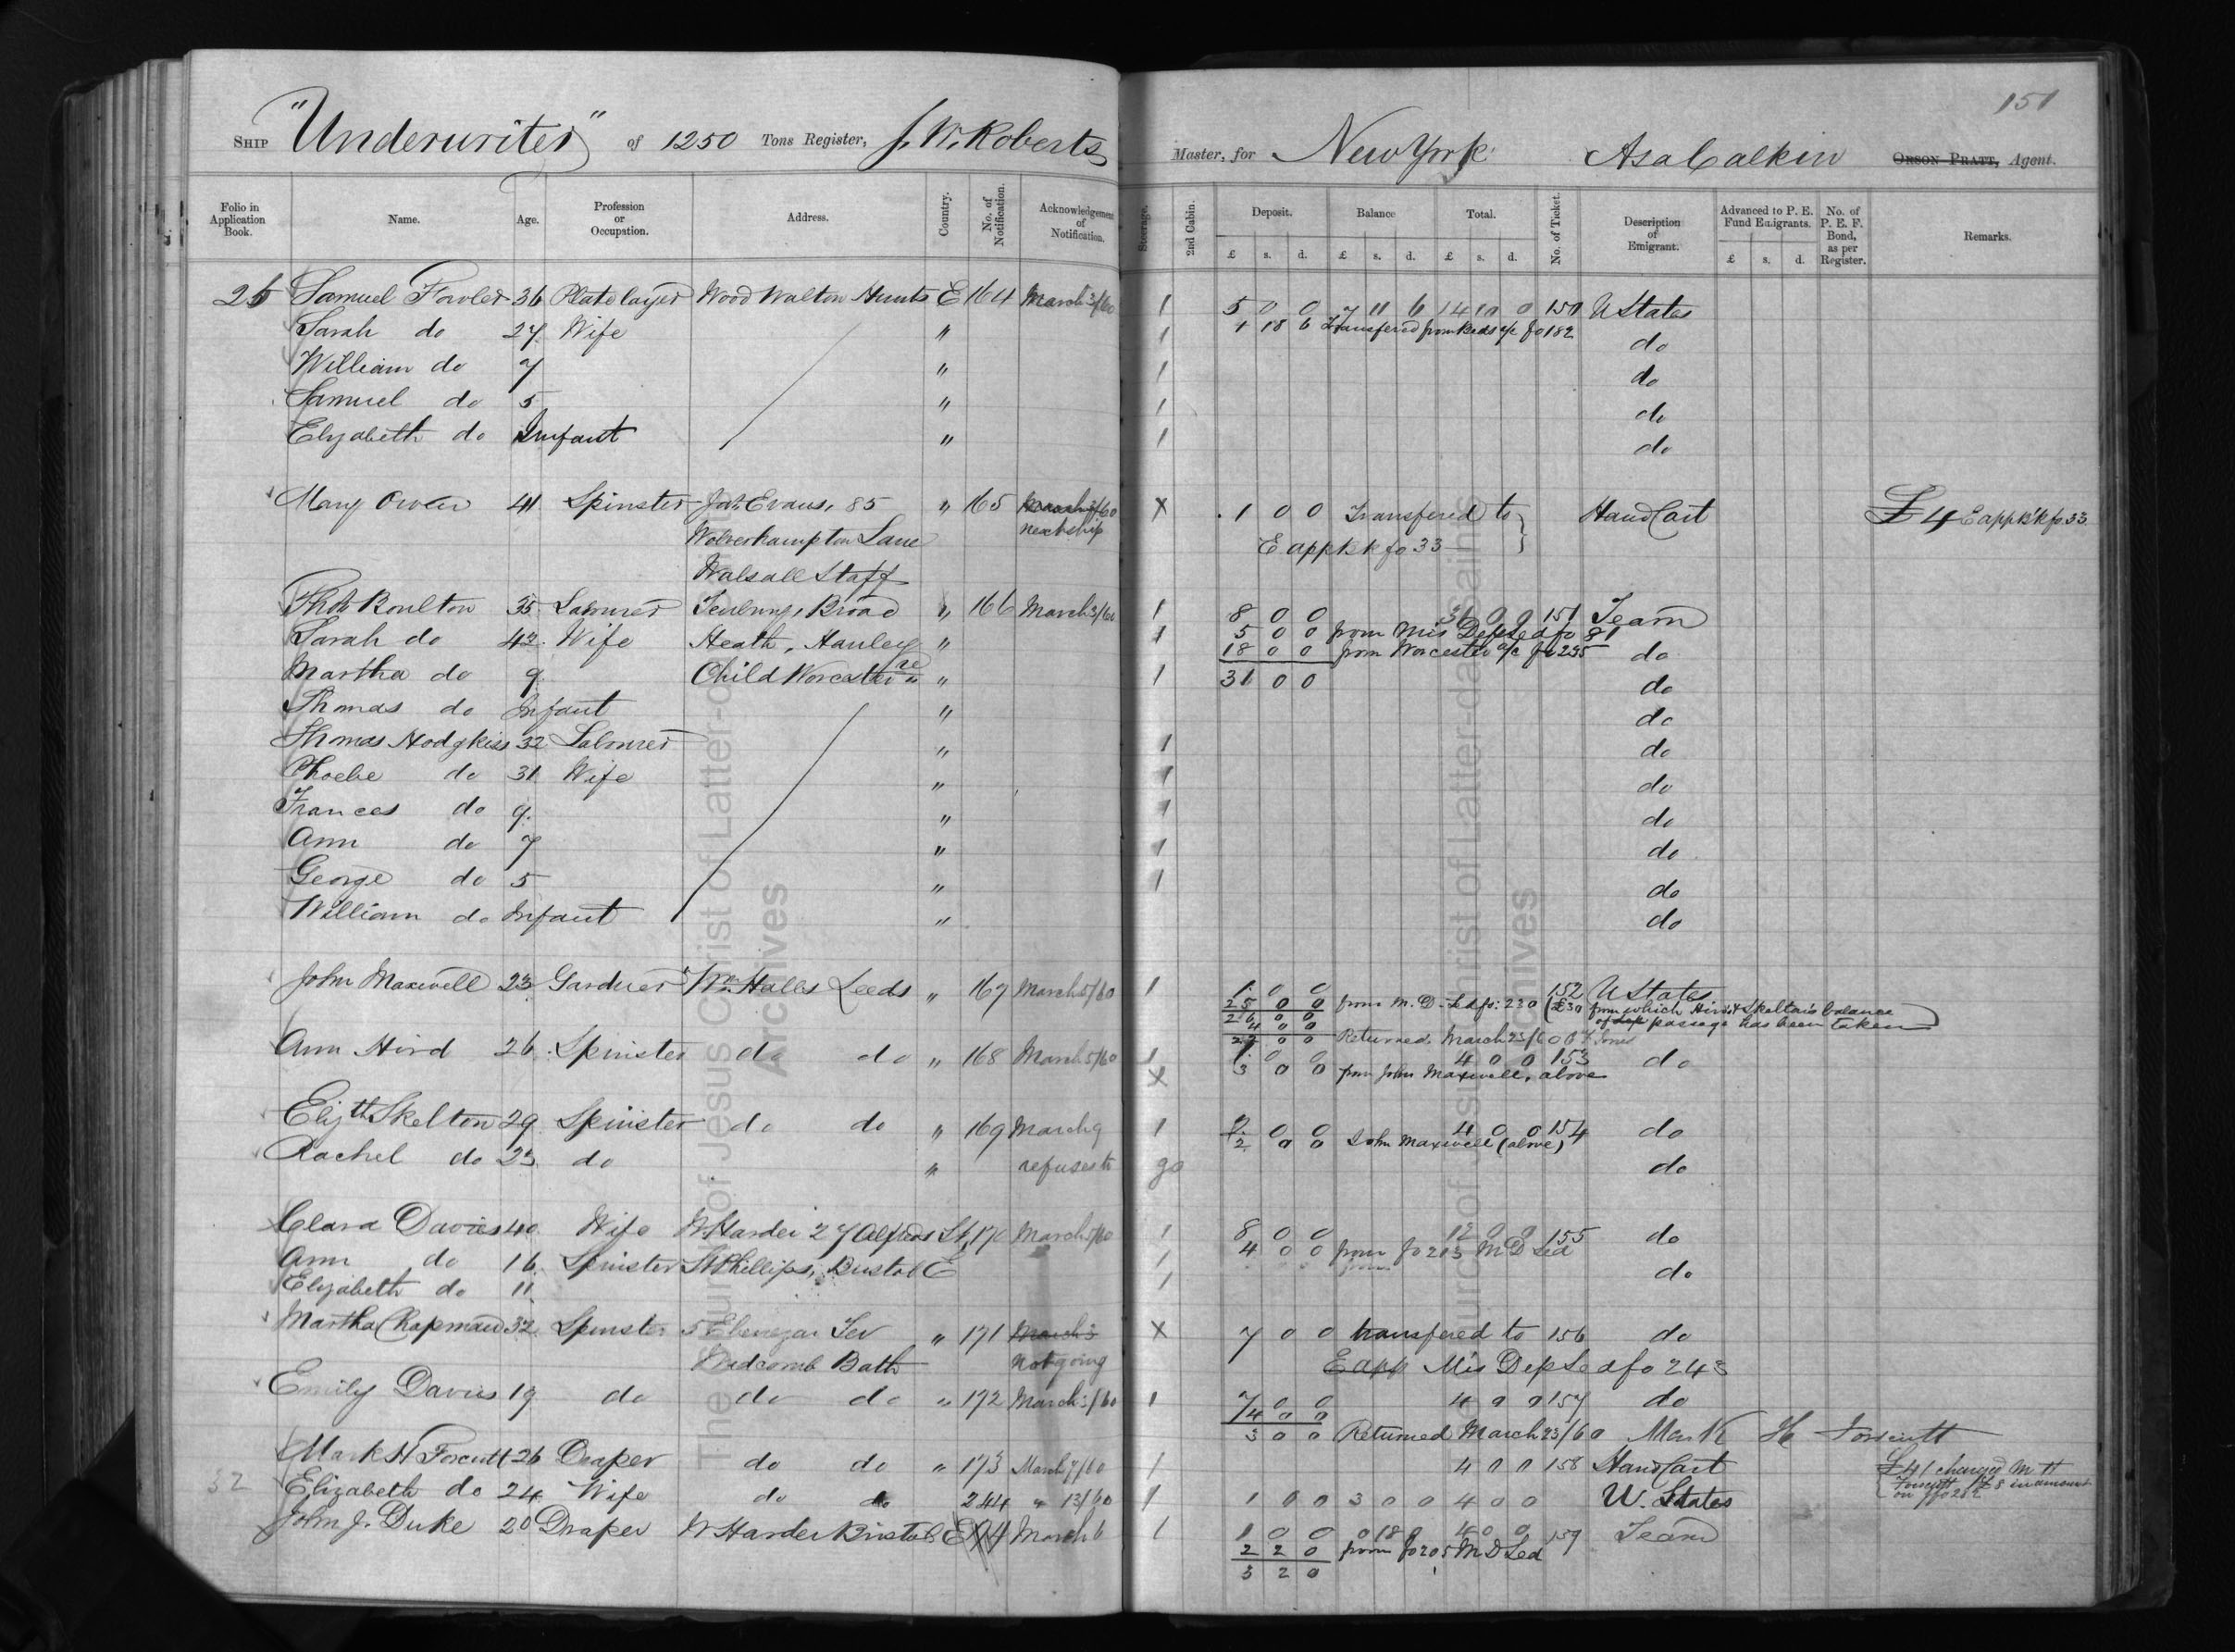 151
SHIP "Underwriter" of 1250 Tons Register, J. W. Roberts Master, for New York Asa Calkin ORSON PRATT, Agent.
Folio in Application Book. Name. Age. Profession or Occupation. Address. Country. No. of Notification. Acknowledgement of Notification. Steerage. 2nd Cabin. Deposit. £ s. d. Balance £ s. d. Total. £ s. d. No. of Ticket. Description of Emigrant. Advanced to P. E. Fund Emigrants. £ s. d. No. of P. E. F. Bond, as per Register. Remarks.
25 Samuel Fowler 36 Platelayer Wood Walton Hunts E 164 March 3/60 1 5 0 0 7 11 6 14 10 0 150 U States
Sarah do 27 Wife " 1 1 18 6 Transfered from Beds a/c fo 182 do
William do 7 " 1 do
Samuel do 5 " 1 do
Elizabeth do Infant " 1 do
Mary Owen 41 Spinster Jas. Evans, 85 " 165 March 3/60 X 1 0 0 Transfered to Hand Cart £4 E app B'k fo. 33
Wolverhampton Lane next ship E app B k fo 33
Walsall Staff
Thos Boulton 35 Labourer Tenbury, Broad " 166 March 3/60 1 8 0 0 31 0 0 151 Team
Sarah do 42 Wife Heath, Hanley " 1 5 0 0 from Mis Dep Led fo 81 do
18 0 0 from Worcester a/c fo 235
Martha do 9 Child Worcestere " 1 31 0 0 do
Thomas do Infant " do
Thomas Hodgkiss 32 Labourer " 1 do
Phoebe do 31 Wife " 1 do
Frances do 9 " 1 do
Ann do 7 " 1 do
George do 5 " 1 do
William do Infant " do
John Maxwell 23 Gardner Wm. Halls Leeds " 167 March 5/60 1 1 0 0 152 U States
25 0 0 from M. D. Led fo: 230 (£30 from which Hird & Skelton's balance
26 0 0 of dep passage has been taken)
4 0 0
22 0 0 Returned March 23/60
Ann Hird 26 Spinster do do " 168 March 5/60 1 1 0 0 4 0 0 153 do
X 3 0 0 from John Maxwell, above
Elizth Skelton 29 Spinster do do " 169 March 9 1 2 0 0 4 0 0 154 do
2 0 0 John Maxwell (above)
Rachel do 23 do " refuses to go do
Clara Davies 40 Wife W Harder 27 Alfred St, 170 March 5/60 1 8 0 0 12 0 0 155 do
Ann do 16 Spinster St Phillips, Bristol E 1 4 0 0 from fo 203 M D Led do
Elizabeth do 11 1
Martha Chapman 32 Spinster 5 Ebenezar Ter " 171 March 3 X 7 0 0 transfered to 156 do
Widcomb Bath not going E app Mis Dep Led fo 243
Emily Davies 19 do do do " 172 March 3/60 1 7 0 0 4 0 0 157 do
4 0 0
3 0 0 Returned March 23/60 Mark H Forscutt
Mark H Forscutt 26 Draper do do " 173 March 7/60 1 4 0 0 158 Hand Cart £4/ charged M H
32 Elizabeth do 24 Wife do do 244 " 13/60 1 1 0 0 3 0 0 4 0 0 U. States Forscutt £8 in amount on fo 202
John J. Duke 20 Draper W Harder Bristol E 174 March 6 1 1 0 0 0 18 0 4 0 0 159 Team
2 2 0 from fo 205 M D Led
3 2 0
The Church of Jesus Christ of Latter-day Saints
Archives